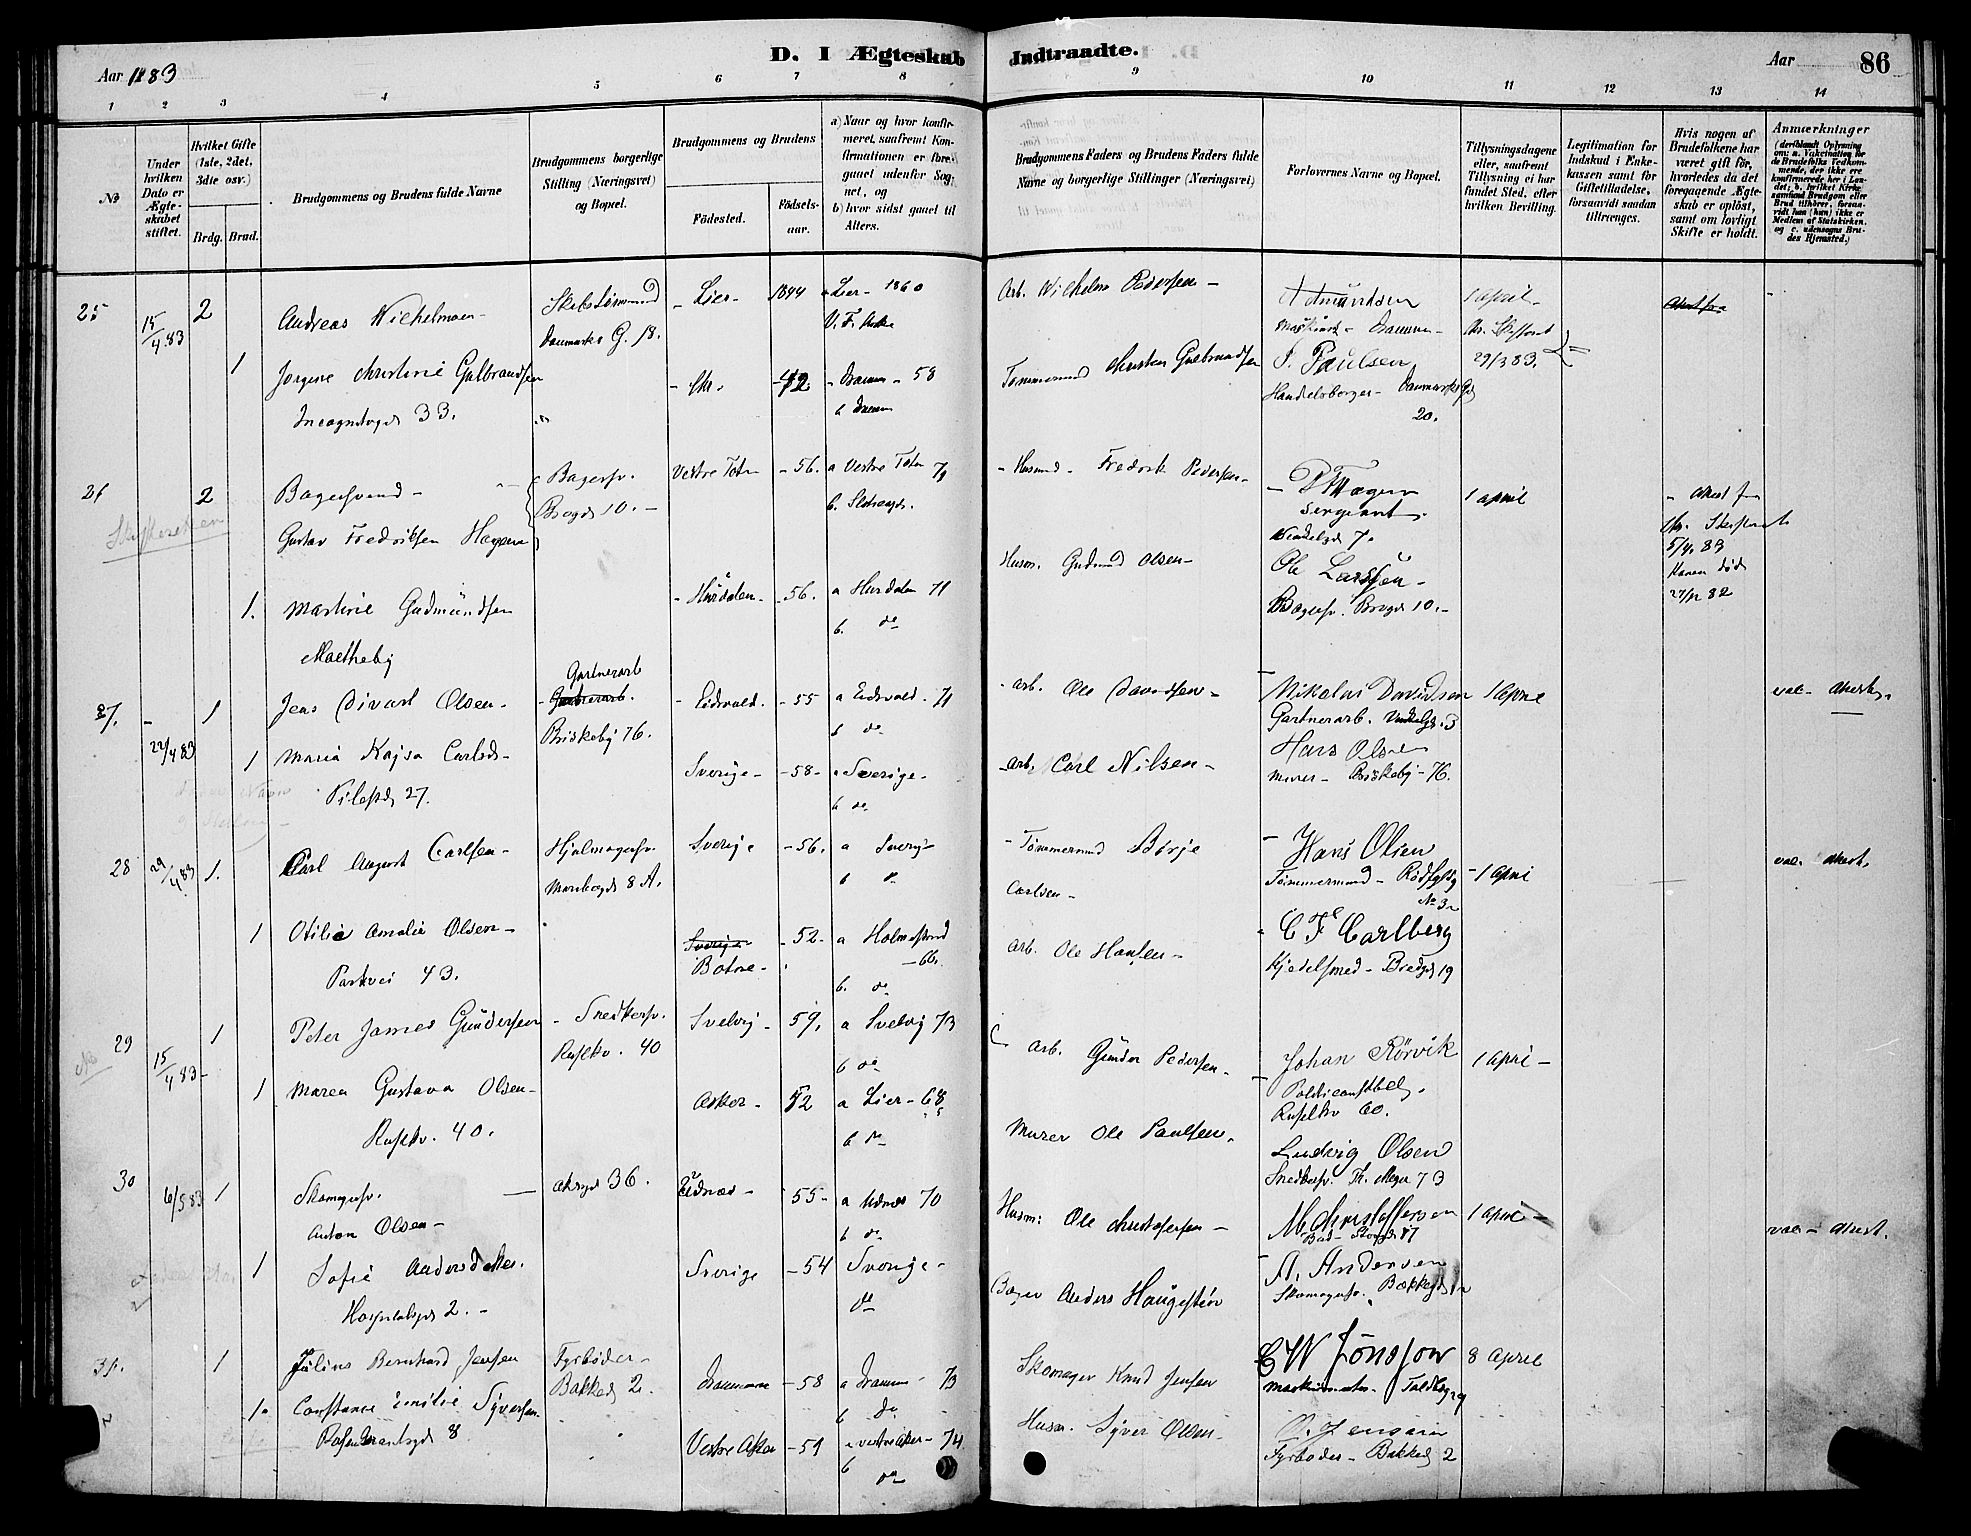 Aar 1883
D. I Ægteskab Indtraadte.
Aar 86
1 2 3 4 5 6 7 8 9 10 11 12 13 14
No
Under hvilken Dato er Ægteskabet stiftet.
Hvilket Gifte (1ste, 2det, 3die osv.)
Brdg. Brud.
Brudgommens og Brudens fulde Navne
Brudgommens borgerlige Stilling (Næringsvei) og Bopæl.
Brudgommens og Brudens
Fødested.
Fødsels-aar.
a) Naar og hvor konfirmeret, saafremt Konfirmationen er foregaaet udenfor Sognet, og
b) hvor sidst gaaet til Alters.
Brudgommens Faders og Brudens Faders fulde Navne og borgerlige Stillinger (Næringsvei)
Forlovernes Navne og Bopæl.
Tillysningsdagene eller, saafremt Tillysning ei har fundet Sted, efter hvilken Bevilling.
Legitimation for Indskud i Enkekassen samt for Giftetilladelse, forsaavidt saadan tiltrænges.
Hvis nogen af Brudefolkene har været gift før, hvorledes da det foregaaende Ægteskab er opløst, samt om lovligt Skifte er holdt.
Anmærkninger
(deriblandt Oplysning om: a. Vakcination for de Brudefolks Vedkommende, der ikke ere konfirmerede her i Landet; b. hvilket Kirkesamfund Brudgom eller Brud tilhører, forsaavidt han (hun) ikke er Medlem af Statskirken, og c. udensogns Brudes Hjemsted.)
25 15/4 83 2 Andreas Wilhelmsen - Lier - 1844 Lier - 1860 Arb. Wilhelm Pedersen - Amundsen 1 april
Danmarks G. 18.
29/3 83.
1 Jorgine Christine Gulbrandsen - Chr. 42 - Dramm - 58 Tømmermand Christen Gulbrandsen J. Paulsen
b Dramm Handelsborger - Danmarks G
Incognitogd 33. 20.
26 2 Bagersvend - Bagersv. Vestre Toten - 56. a Vestre Toten 71 - Husmd. Fredrik Pedersen - 1 april
Brogd 10. -
Gustav Fredriksen Hagen Sergeant.
7.
5/4 83
Konen død
27/12 82
1. Martine Gudmundsen - Hurdalen - 56. a Hurdalen 71 Husm. Gudmund Olsen - Ole Larssen -
b. do Bagersv. Brogd 10. -
Maltheby
27. 22/4 83 1 Jens Sivart Olsen - Gartnerarb Gartnerarb. - Eidsvold. - 55 a Eidsvold - 71 - Arb. Ole Davidsen - Nikolai Davidsen 1 April vac - attest.
Briskeby 76. b do Gartnerarb. 3
1 Maria Kajsa Carlsd - Sverige - 58 - a Sverige - Arb. Carl Nilsen - Hans Olsen
Pilestd 27. b do Murer - Briskeby - 76.
28 29/4 83 1. Carl August Carlsen - Hjulmagersv. Sverige - 56. a Sverig - - Tømmermand Børje Carlsen - Hans Olsen 1 April vac. attest.
8 A. Tømmermand - No 3
1 Otilie Amalie Olsen - Sverige Botne - - 52 - a Holmestrand - 66. Arb. Ole Hansen - C F Carlberg
Parkvei 43. b. do Kjedelsmed - Bredgd 19
29 15/4 83 - 1 Peter James Gundersen - Snedkersv. Svelvig - 59. a Svelvig 73 Arb. Gunder Pedersen - Johan Rörvik 1 April -
Ruselkv. 40 b do Politiconstbel.
Ruselkv 60.
1 Maren Gustava Olsen - Asker - 52 a Lier - 68 Murer Ole Paulsen. Ludvig Olsen
Ruselkv. 40. b do Snedkersv. Th. Meyer 73
30 6/5 83 1 Skomagersv. Akrsgd 36. Eidnes - - 55 - a Udnes 70 Husm: Ole Christofersen - M Christoffersen 1 april - vac - attest.
Anton Olsen - b do Bud - Storgd 17
1 Sofie Andersdatter. Sverige - 54 Sverige - Bager Anders Haugström A. Andersen
Hospitalsgd 2. - do Skomagersv. Bakkegd
31. 1 Julius Bernhard Jensen Fyrbøder - Drammen - 58 a Dramm - 73 Skomager Knud Jensen C W Jonsson 8 April
Bakkegd 2. b do
1. Constance Emilie Syversen. Vestre Aker - 59 a Vestre Aker - 74 Husm. Syver Olsen - O. Jensen
Rosenkrantzgd 8 b do Fyrbøder - Bakkegd 2